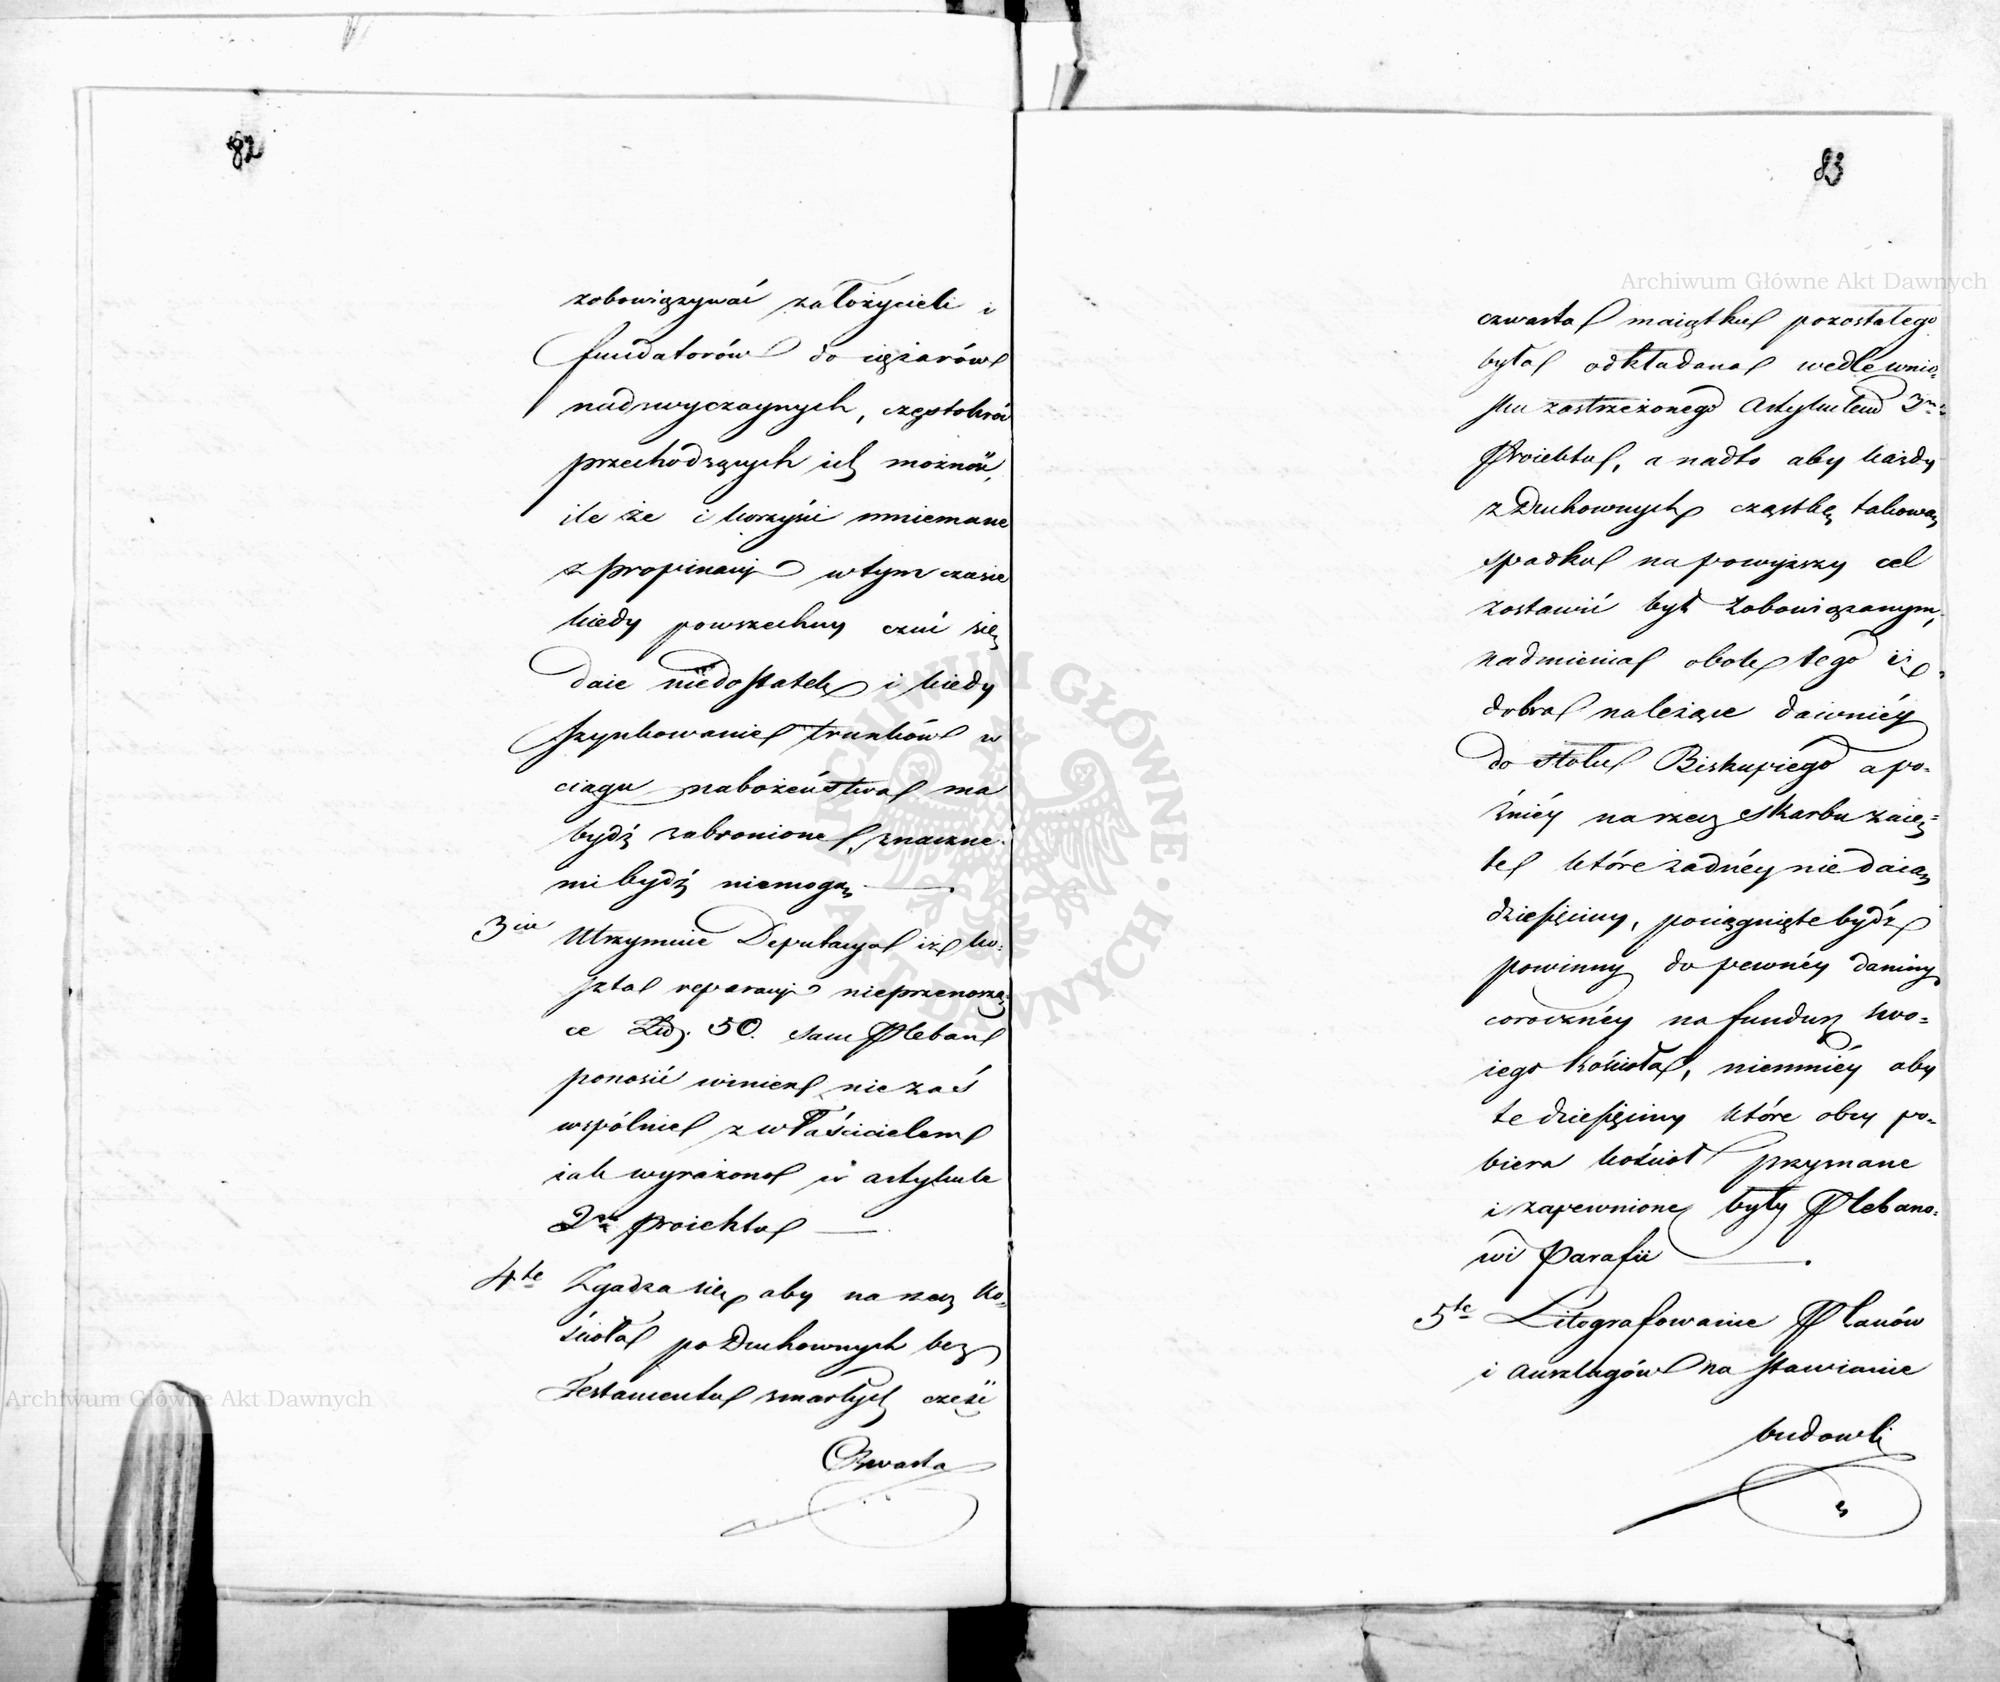 82
zobowiązywać założycieli i
fundatorów do ciężarów
nadzwyczaynych, częstokroć
przechodzących ich możność,
ile że i korzyści mniemane
z propinacyi w tym czasie
kiedy powszechny czuć się
daie niedostatek i kiedy
szynkowanie trunków w
ciągu nabożeństwa ma
bydź zabronione, znaczne-
mi bydź niemogą
3cie Utrzymuie Deputacya iż ko-
szta reparacyi nieprzenoszą-
ce Złp. 50. sam Pleban
ponosić winien nie zaś
wspólnie z właścicielem
iak wyrażono w artykule
2m proiektu
4te Zgadza się aby na rzecz Ko-
ścioła po Duchownych bez
Testamentu zmarłych część
Czwarta
83
czwarta maiątku pozostałego
była odkładana wedle wnio-
sku zastrzeżonego Artykułem 3m
Proiektu, a nadto aby każdy
z Duchownych cząstkę takową
spadku na powyższy cel
zostawić był zobowiązanym,
nadmienia obok tego iż
dobra należące dawniéy
do stołu Biskupiego a po-
źniéy na rzecz Skarbu zaię-
te które żadnéy nie daią
dziesięciny, pociągnięte bydź
powinny do pewnéy daniny
coroczney na fundusz swo-
iego Kościoła, niemniéy aby
te dziesięciny które obcy po-
biera kościoł przyznane
i zapewnione były Plebano-
wi Parafii
5te Litografowanie Planów
i Anszlagów na stawianie
budowli
Archiwum Główne Akt Dawnych
Archiwum Główne Akt Dawnych
ARCHIWUM GŁÓWNE AKT DAWNYCH